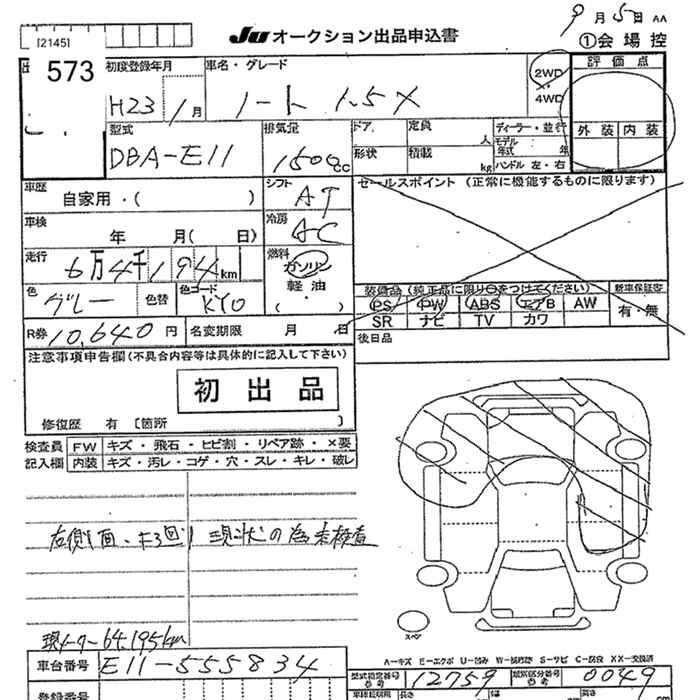 9月5日 AA
[2145]
JU オークション出品申込書
①会場控
573
初度登録年月 車名・グレード 2WD・4WD 評価点
H23 1月 ノート 1.5X
外装 内装
型式 排気量 ドア 定員 人 ディーラー・並行
形状 積載 kg モデル年式 年
DBA-E11 1500cc ハンドル 左・右
車歴 シフト セールスポイント (正常に機能するものに限ります)
自家用・( ) AT
車検 冷房
年 月( 日) AC
走行 燃料
6万4千194km ガソリン
軽油
( )
色 色替 色コード
グレー KY0
装備品(純正品に限り○をつけてください) 新車保証書
PS PW ABS エアB AW 有・無
SR ナビ TV カワ
R券 10,640円 名変期限 月 日
後日品
注意事項申告欄(不具合内容等は具体的に記入して下さい)
初出品
修復歴 有 〔箇所 〕
検査員記入欄
FW キズ・飛石・ヒビ割・リペア跡・×要
内装 キズ・汚レ・コゲ・穴・スレ・キレ・破レ
右側1面、 現状の為未検査
現メーター64,195km
スペア
車台番号 E11-555834
A-キズ E-エクボ U-凹み W-補修跡 S-サビ C-腐食 XX-交換済
型式指定番号 12759 類別区分番号 0049
登録番号
長さ 幅 高さ